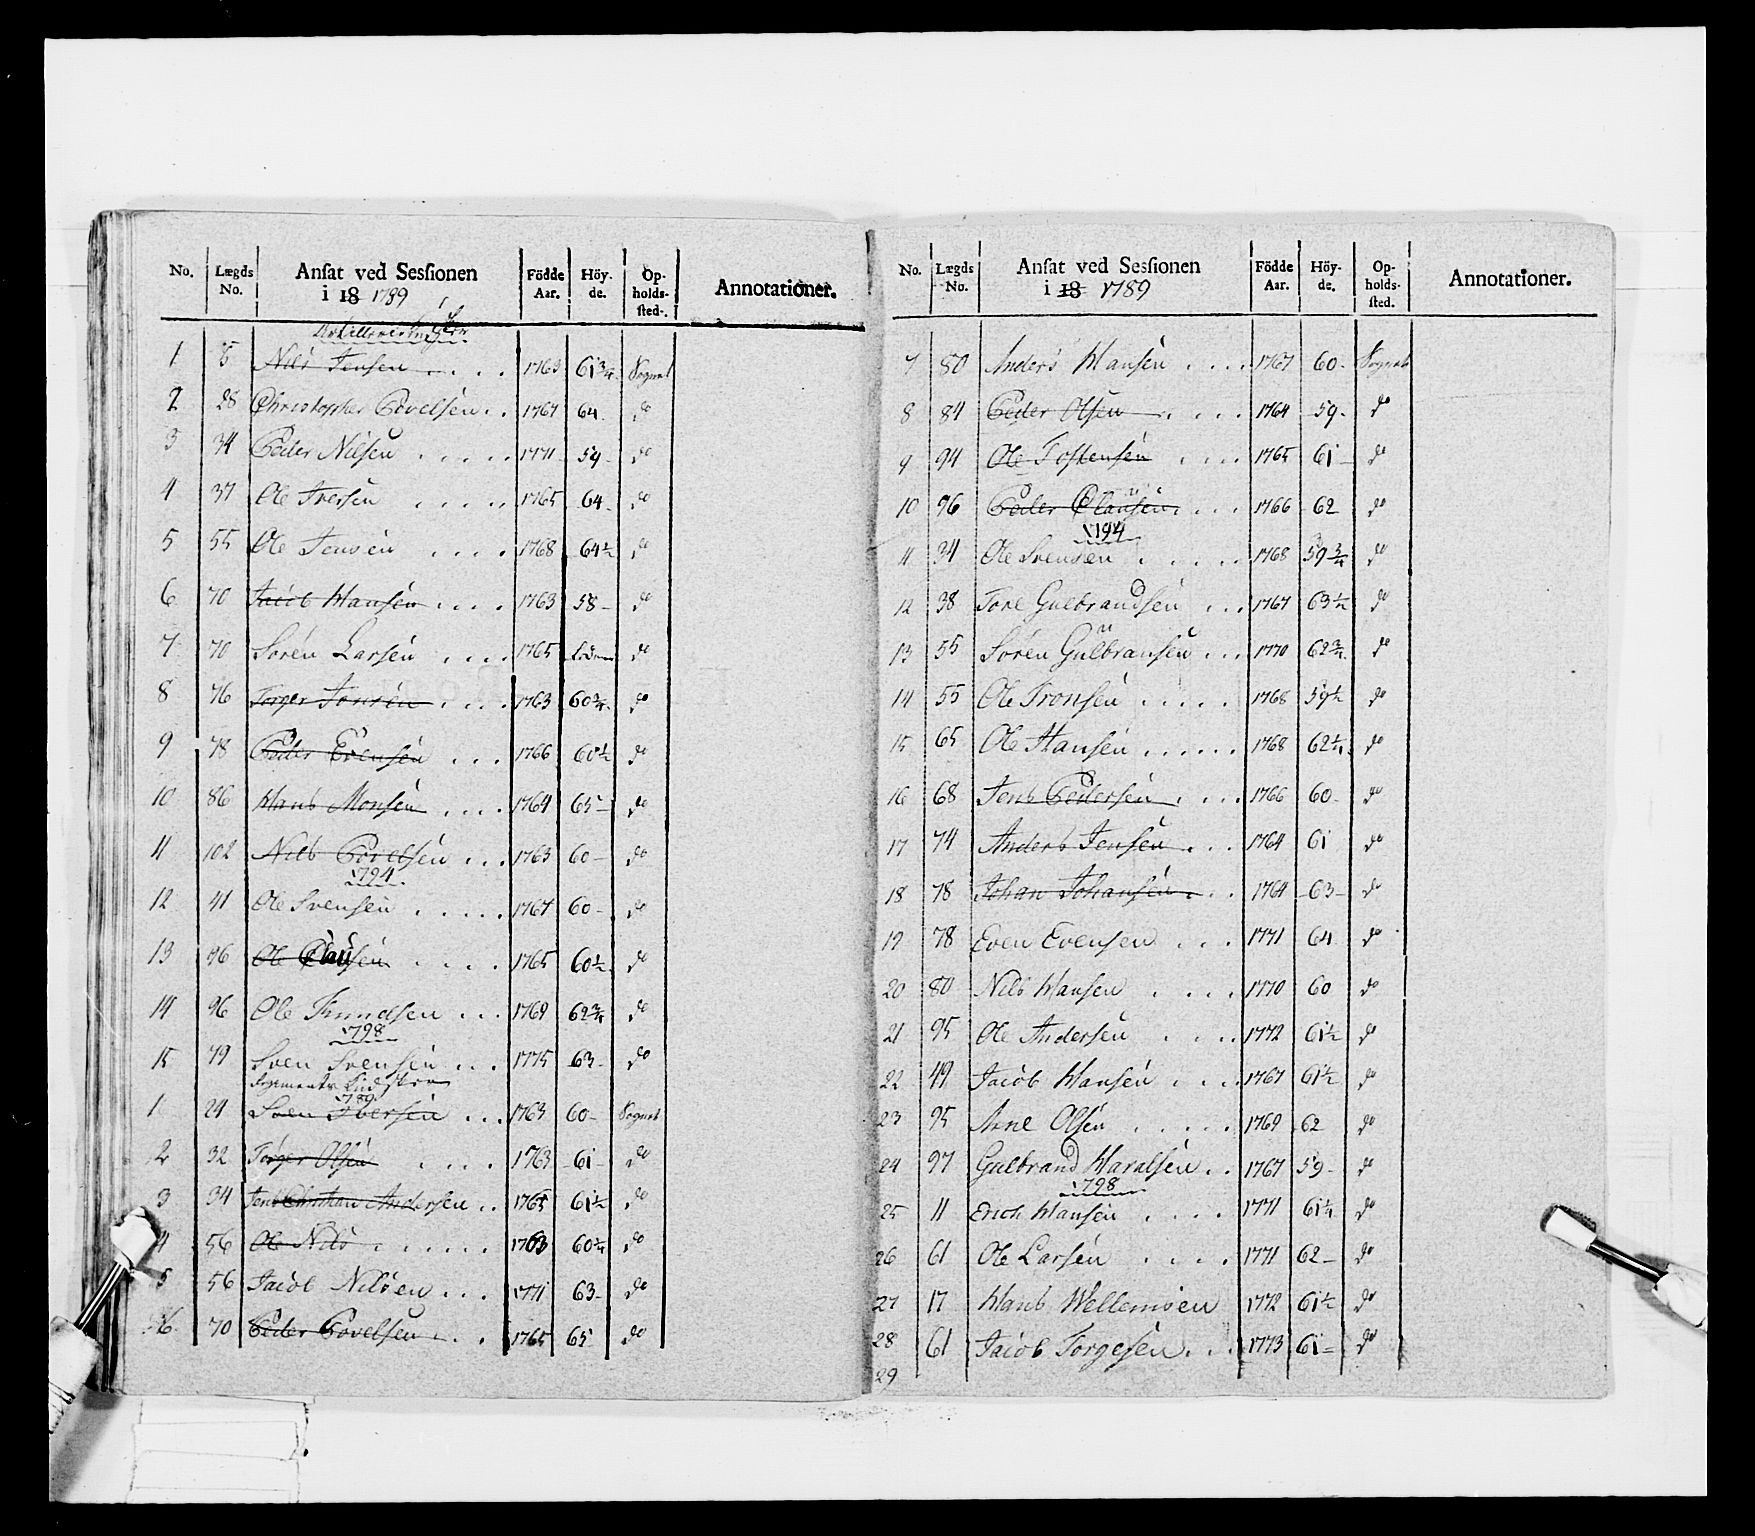 No. Lægds No. Ansat ved Sessionen i 18 1789 Födde Aar. Höy- de. Op- holds- sted. Annotationer.
1 5 Nils Jensen .... 1763 61¾ Sognet
2 28 Christopher Povelsen .. 1767 64 do
3 34 Peder Nilsen ..... 1771 59 do
4 37 Ole Iversen ..... 1765 64 do
5 55 Ole Jensen .... 1768 64½ do
6 70 Jacob Hansen .... 1763 58 do
7 70 Sören Larsen .... 1765 do
8 76 Torger Jonsen .... 1763 60¾ do
9 78 Peder Evensen ... 1766 60½ do
10 86 Hans Monsen .... 1764 65 do
11 102 Nils Povelsen ... 1763 60 do
1794
12 41 Ole Svensen ..... 1767 60 do
13 96 Ole Clausen .... 1765 60½ do
14 96 Ole Knudsen ... 1769 62¾ do
1798
15 79 Sven Svensen ... 1775 63 do
1789
1 24 Sven Iversen ... 1763 60 Sognet
2 32 Torger Olsen .... 1763 61 do
3 34 Jens Christian Andersen .. 1765 61½ do
4 56 Ole Nils ...... 1763 60¼ do
5 56 Jacob Nilsen ... 1771 63 do
6 70 Peder Povelsen .. 1765 65 do
No. Lægds No. Ansat ved Sessionen i 18 1789 Födde Aar. Höy- de. Op- holds- sted. Annotationer.
7 80 Anders Hansen .... 1767 60 Sognet
8 84 Peder Olsen .... 1764 59 do
9 94 Ole Tostensen ... 1765 61 do
10 96 Peder Clausen ... 1766 62 do
1794
11 34 Ole Svensen ..... 1768 59¾ do
12 38 Tore Gulbrandsen ... 1767 63½ do
13 55 Sören Gulbransen ... 1770 62¾ do
14 55 Ole Tronsen ..... 1768 59½ do
15 65 Ole Hansen ...... 1768 62¼ do
16 68 Jens Pedersen .... 1766 60 do
17 74 Anders Jensen ... 1764 61 do
18 78 Johan Johansen .. 1764 63 do
19 78 Even Evensen ... 1771 64 do
20 80 Nils Hansen .... 1770 60 do
21 95 Ole Andersen .... 1772 61½ do
22 49 Jacob Hansen .... 1767 61½ do
23 95 Arne Olsen ..... 1769 62 do
24 97 Gulbrand Haralsen .. 1767 59 do
1798
25 11 Erich Hansen .... 1771 61¼ do
26 61 Ole Larsen .... 1771 62 do
27 17 Hans Wellemsen 1772 61½ do
28 61 Jacob Torgesen ... 1773 61 do
29